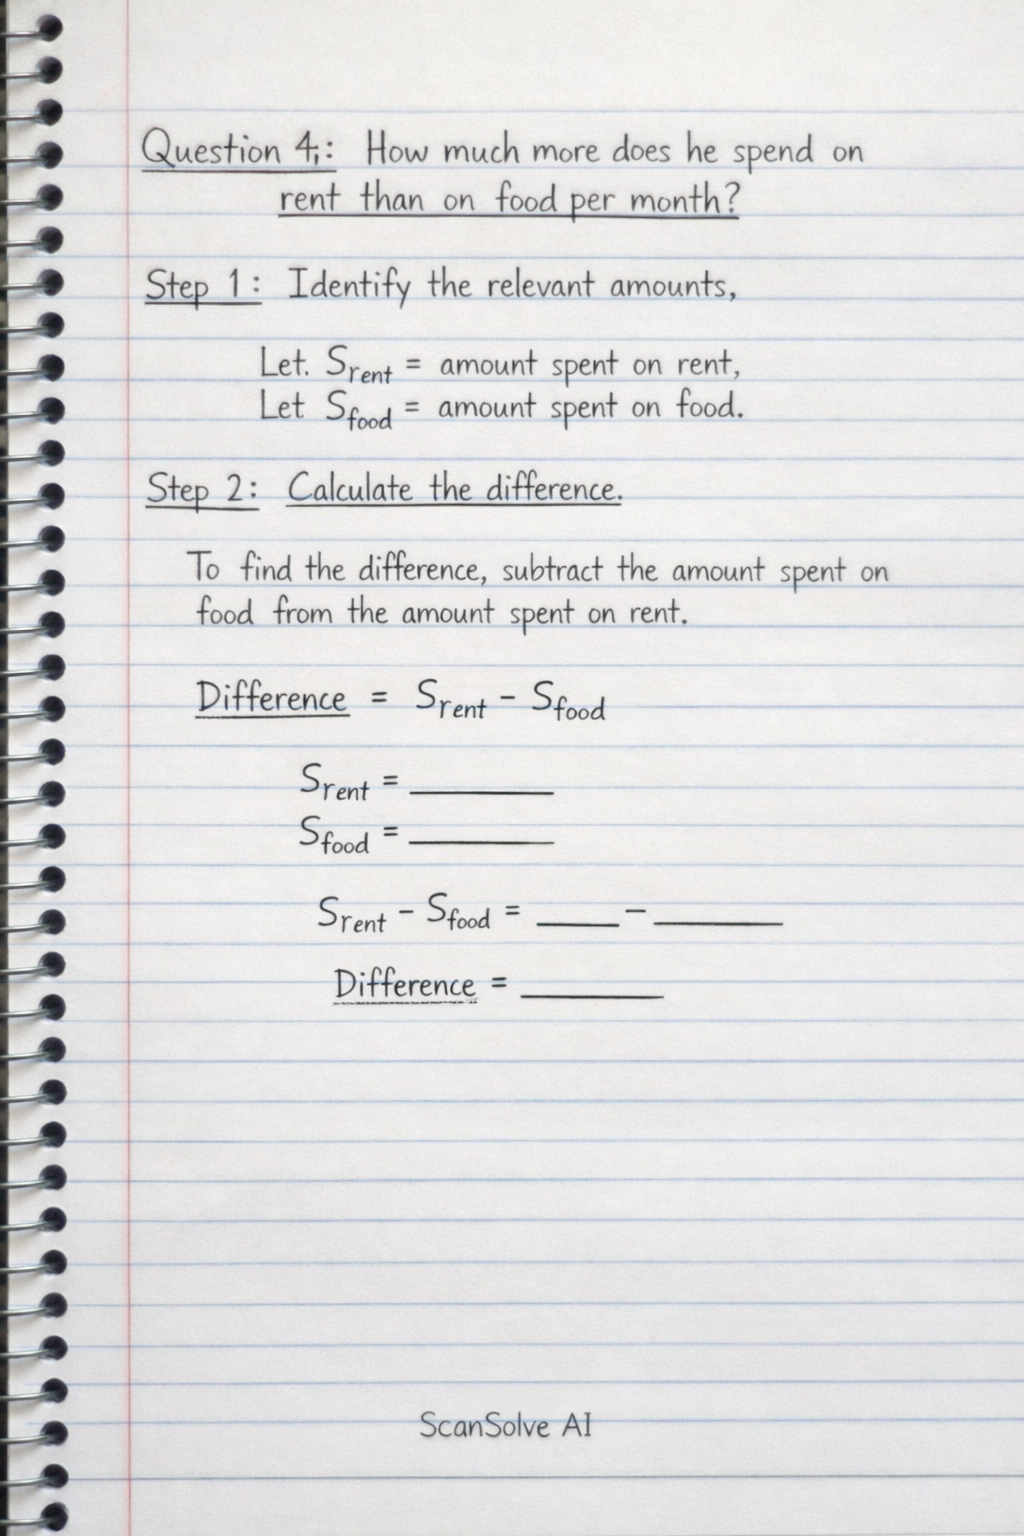 Question 4: How much more does he spend on
rent than on food per month?
Step 1: Identify the relevant amounts,
Let. Srent = amount spent on rent,
Let Sfood = amount spent on food.
Step 2: Calculate the difference.
To find the difference, subtract the amount spent on
food from the amount spent on rent.
Difference = Srent - Sfood
Srent = __________
Sfood = __________
Srent - Sfood = ______ - _________
Difference = __________
ScanSolve AI